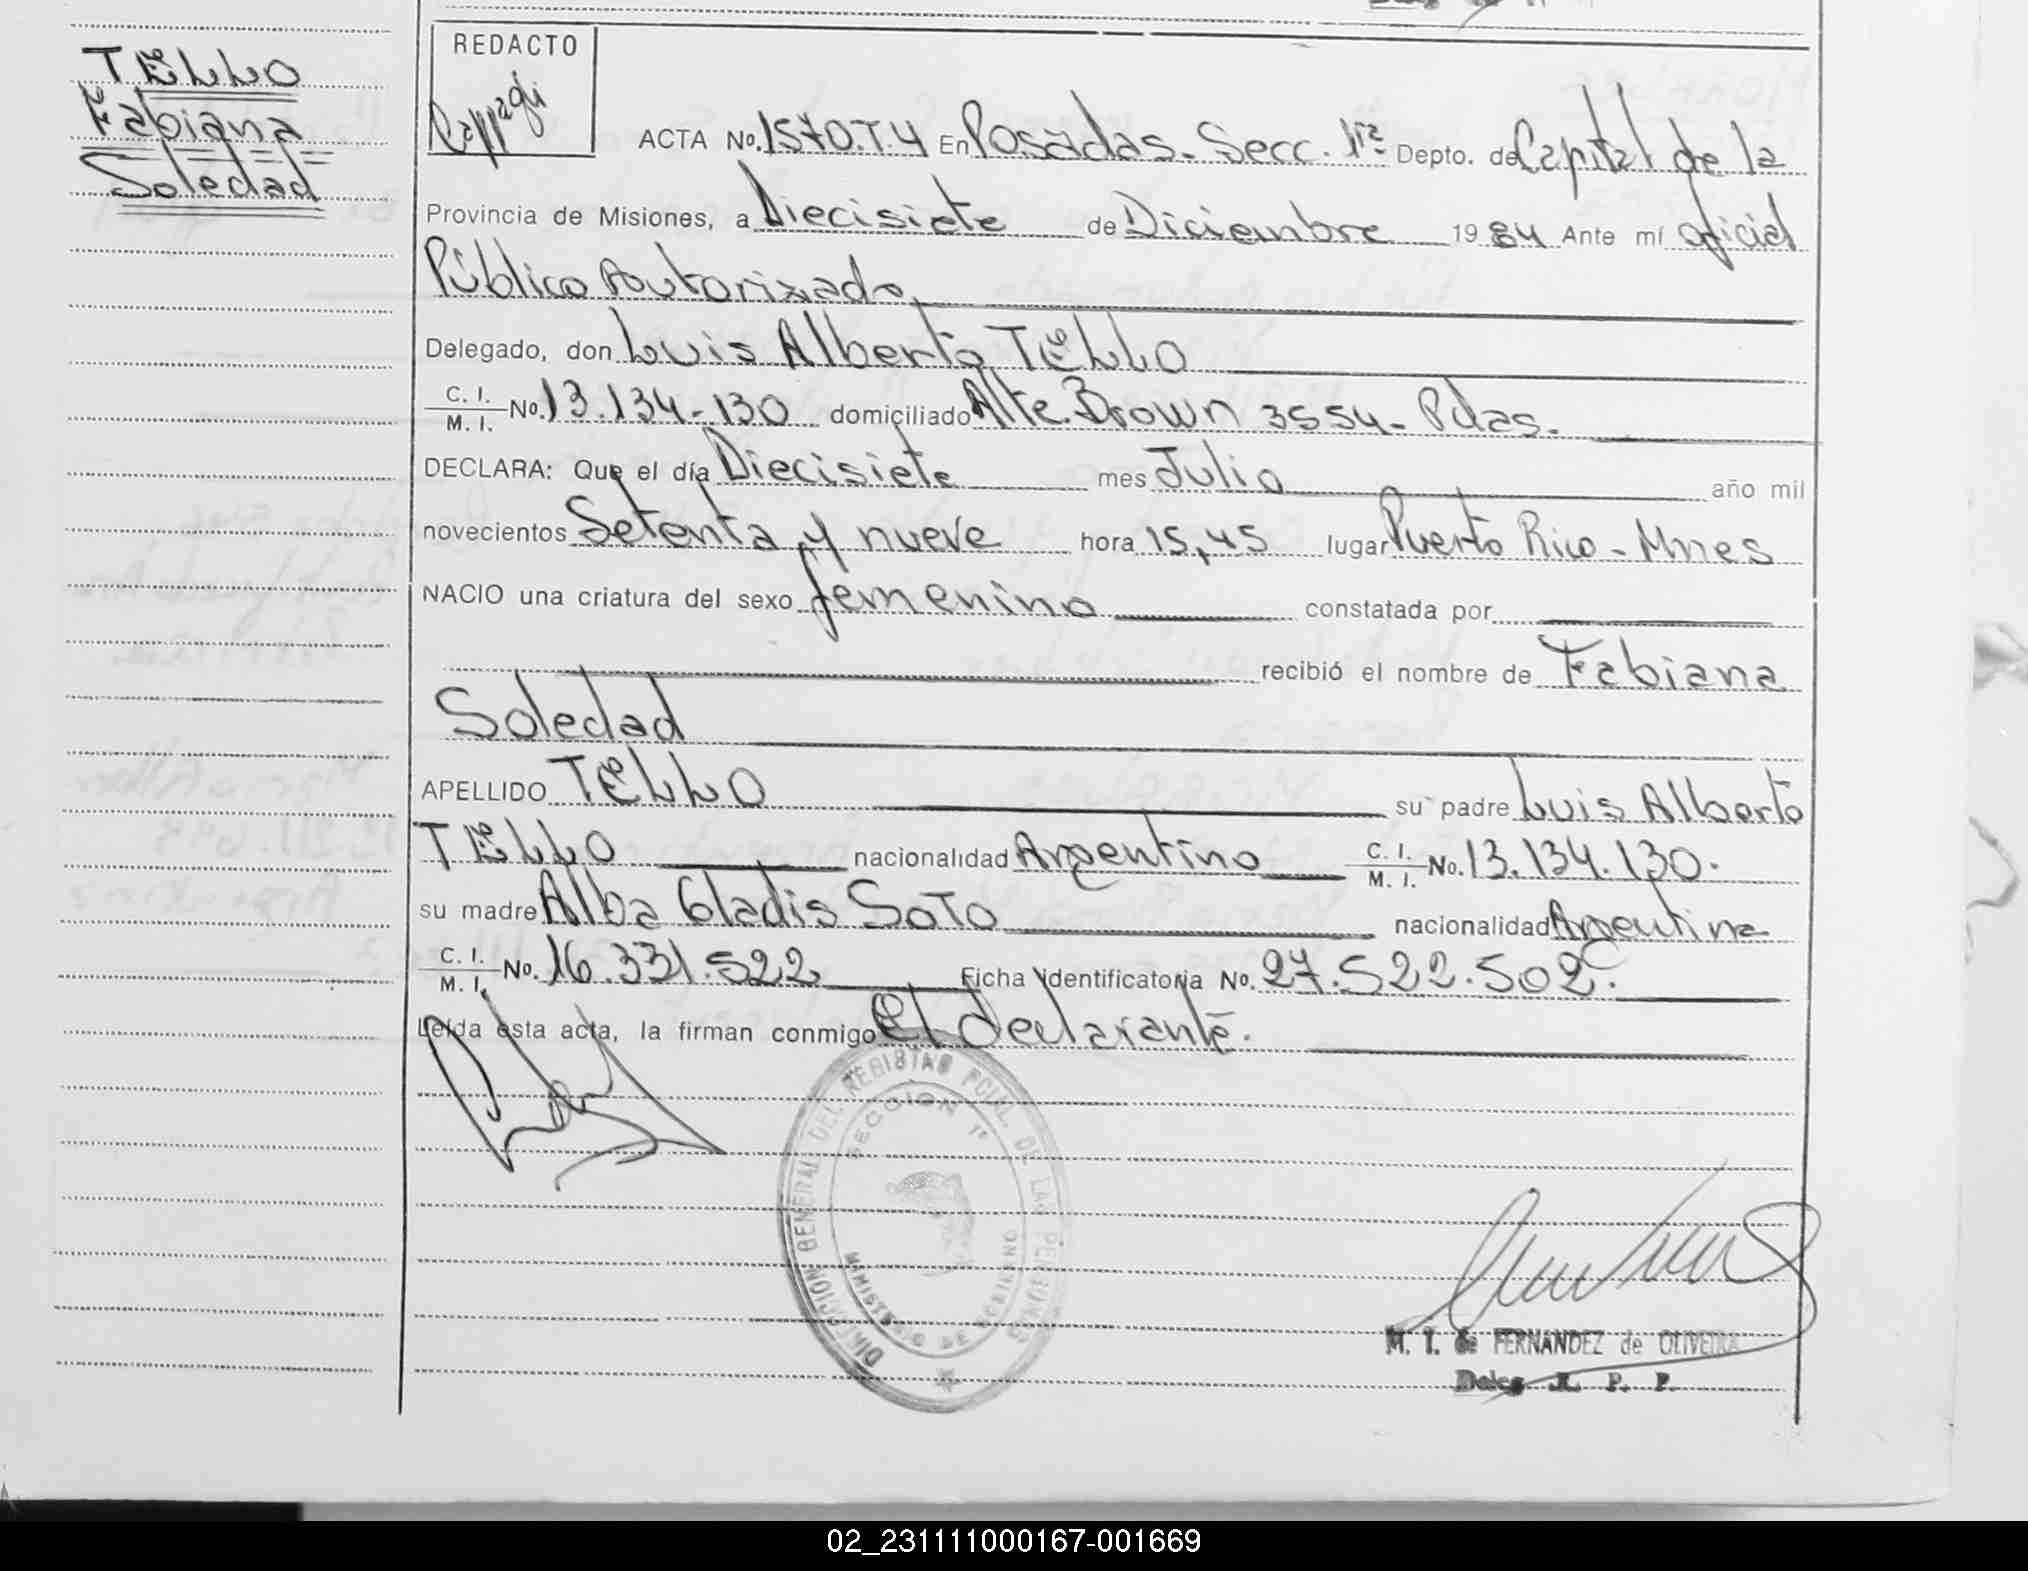 TELLO
Fabiana
Soledad
REDACTO
ACTA No. 1570.T.4 En Posadas - Secc. 1ra Depto. de Capital de la
Provincia de Misiones, a Diecisiete de Diciembre 1984 Ante mí oficial
Público Autorizado
Delegado, don Luis Alberto TELLO
C. I. / M. I. No. 13.134-130 domiciliado Alte. Brown 3554 - Pdas.
DECLARA: Que el día Diecisiete mes Julio año mil
novecientos Setenta y nueve hora 15,45 lugar Puerto Rico - Mnes
NACIO una criatura del sexo femenino constatada por
recibió el nombre de Fabiana
Soledad
APELLIDO TELLO su padre Luis Alberto
TELLO nacionalidad Argentino C. I. / M. I. No. 13.134.130.
su madre Alba Gladis SOTO nacionalidad Argentina
C. I. / M. I. No. 16.331.522 Ficha identificatoria No. 27.522.502.
Leída esta acta, la firman conmigo el declarante.
DIRECCION GENERAL DEL REGISTRO PCIAL. DE LAS PERSONAS
SECCION 1ª
MINISTERIO DE GOBIERNO
M. I. de FERNANDEZ de OLIVEIRA
Deleg. R. P. P.
02_231111000167-001669